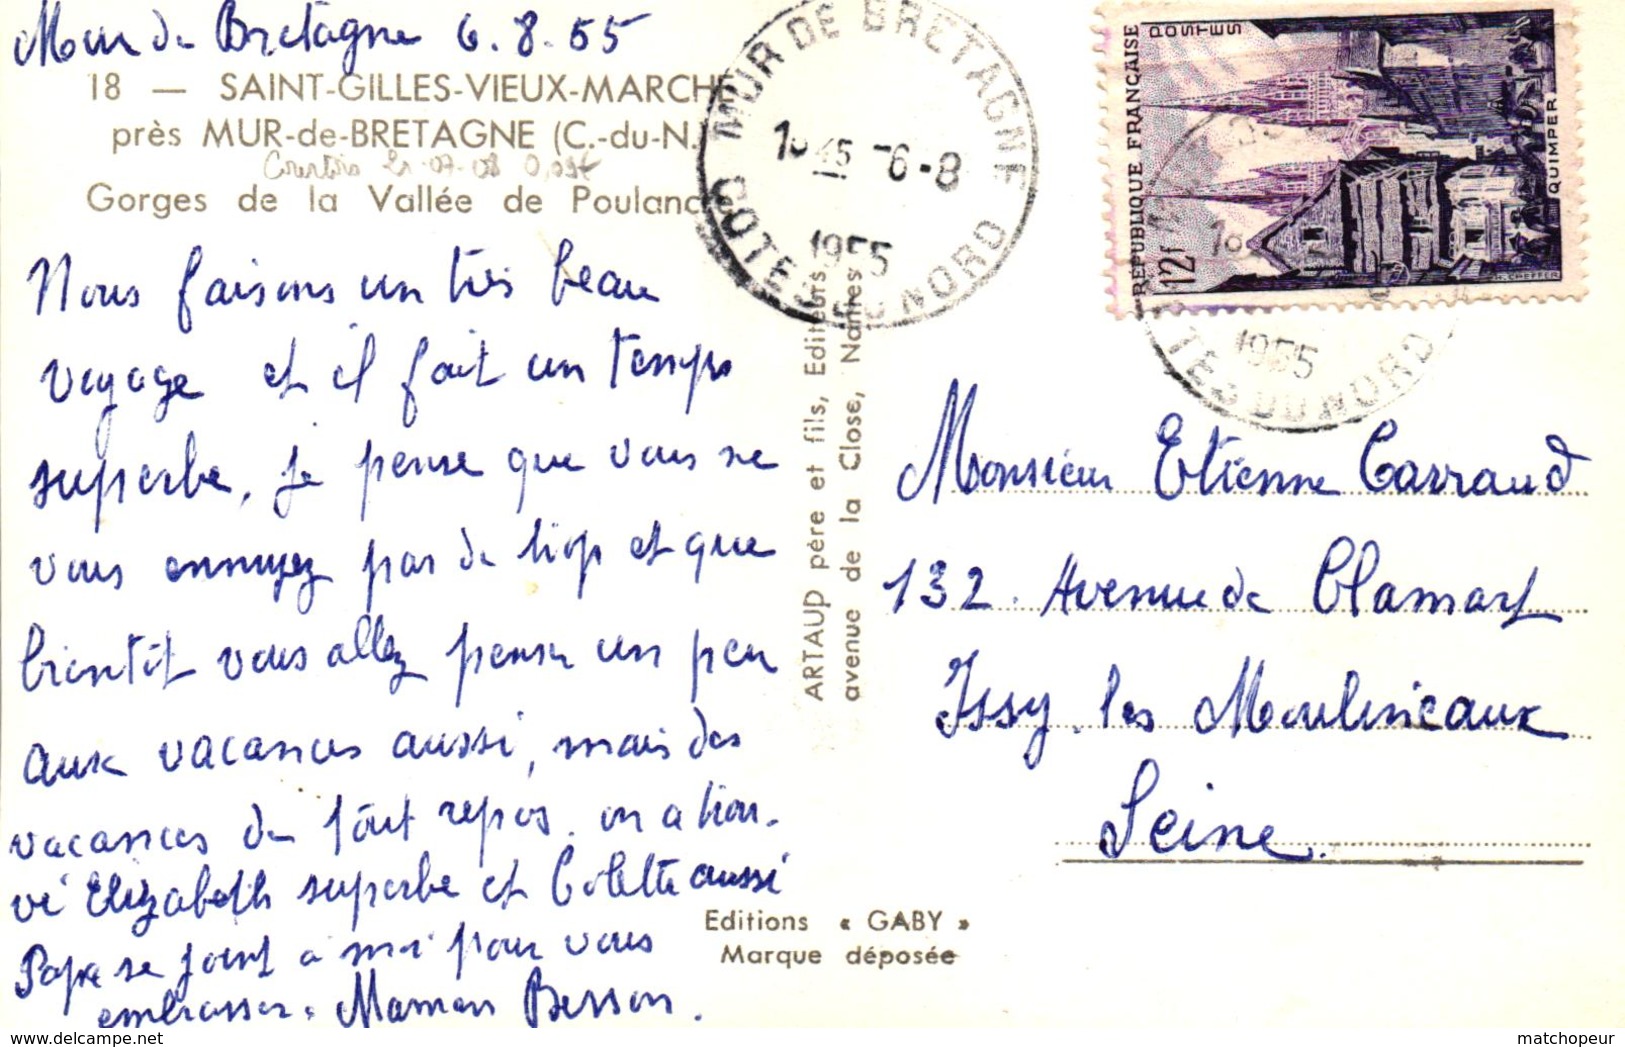 Mur de Bretagne 6.8.55
18 — SAINT-GILLES-VIEUX-MARCHE
près MUR-de-BRETAGNE (C.-du-N.
Gorges de la Vallée de Poulanc
Nous faisons un très beau
voyage et il fait un temps
superbe, je pense que vous ne
vous ennuyez pas de trop et que
bientôt vous allez penser un peu
aux vacances aussi, mais des
vacances de tout repos. on a trou-
vé Elizabeth superbe et Colette aussi
Papa se joint à moi pour vous
embrasser. Maman Besson.
MUR DE BRETAGNE
COTES DU NORD
-6-8
1955
ARTAUD père et fils, Editeurs
avenue de la Close, Nantes
Editions « GABY »
Marque déposée
POSTES
REPUBLIQUE FRANÇAISE
12f
QUIMPER
1955
TES DU NORD
Monsieur Etienne Carraud
132. Avenue de Clamart
Issy. les Moulineaux
Seine.
matchopeur